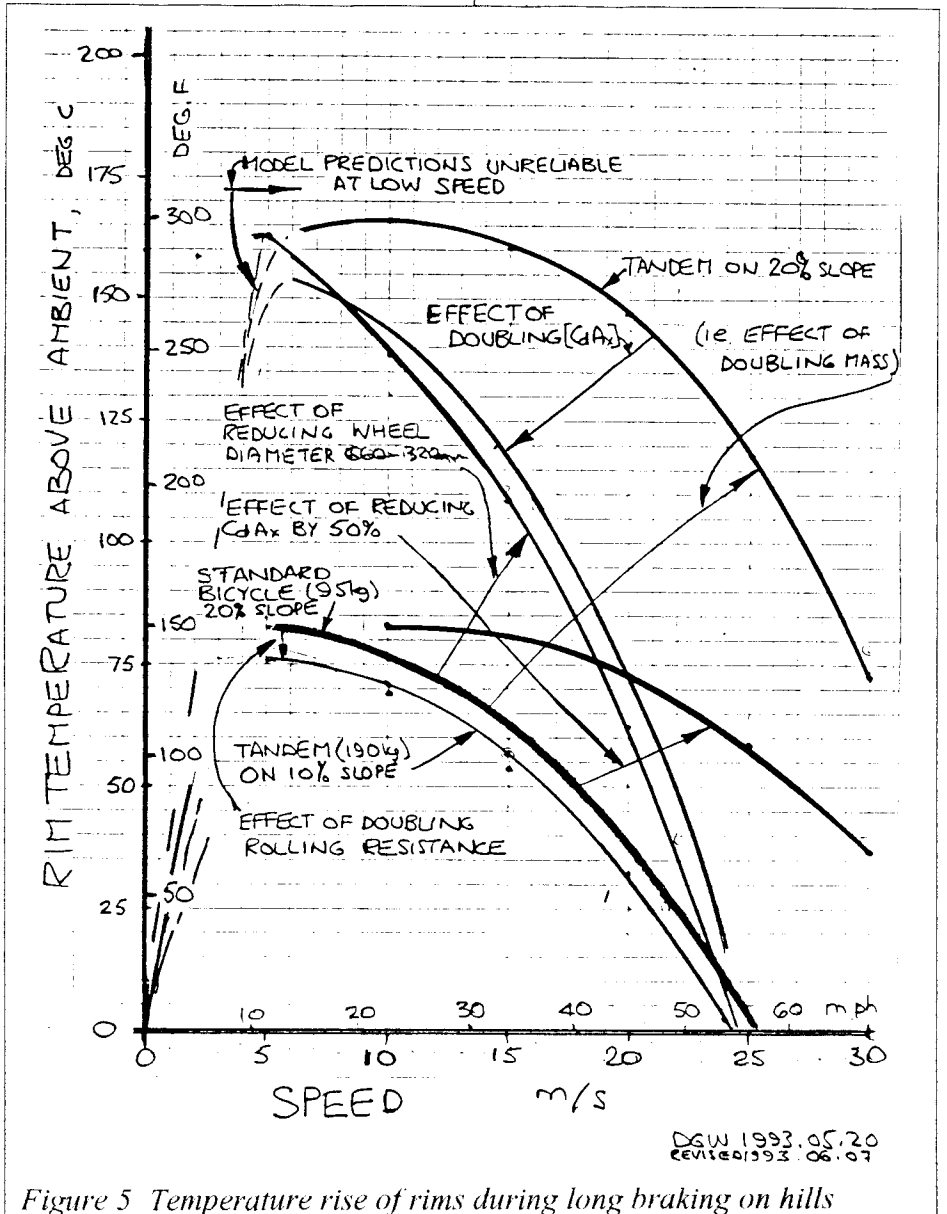 RIM TEMPERATURE ABOVE AMBIENT, DEG.C
DEG.F
200
175
150
125
100
75
50
25
0
300
250
200
150
100
50
MODEL PREDICTIONS UNRELIABLE
AT LOW SPEED
TANDEM ON 20% SLOPE
EFFECT OF
DOUBLING [CdAx]
(i.e. EFFECT OF
DOUBLING MASS)
EFFECT OF
REDUCING WHEEL
DIAMETER 660-320mm
EFFECT OF REDUCING
CdAx BY 50%
STANDARD
BICYCLE (95kg)
20% SLOPE
TANDEM (190kg)
ON 10% SLOPE
EFFECT OF DOUBLING
ROLLING RESISTANCE
10 20 30 40 50 60 mph
0 5 10 15 20 25 30
SPEED m/s
DGW 1993.05.20
REVISED 1993.06.07
Figure 5 Temperature rise of rims during long braking on hills